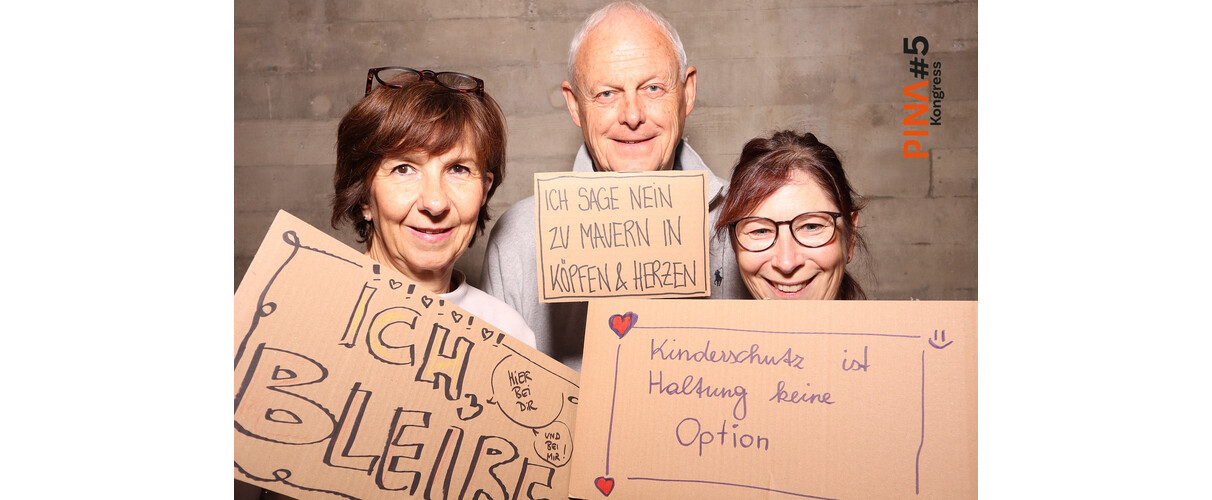 PINA#5
Kongress
ICH SAGE NEIN
ZU MAUERN IN
KÖPFEN & HERZEN
ICH
BLEIBE
HIER
BEI
DIR
UND
BEI
MIR!
Kinderschutz ist
Haltung keine
Option